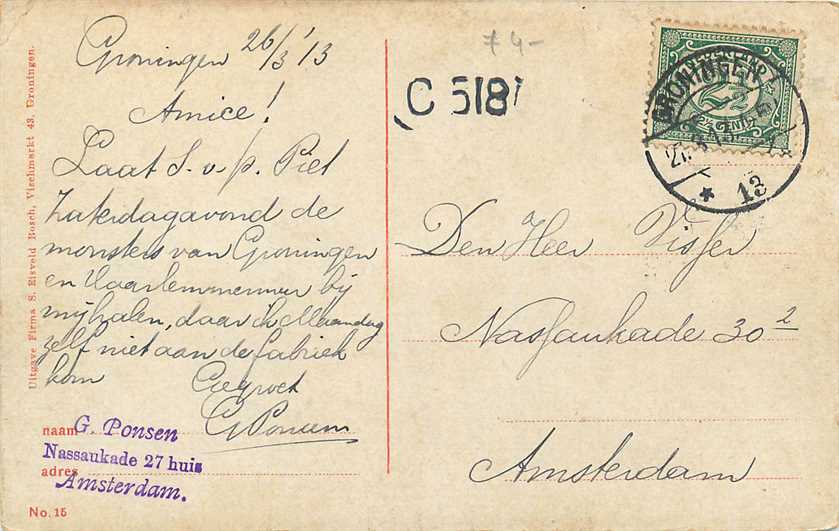 Groningen 26/3 '13
Amice!
Laat S.v.p. Piet
Zaterdagavond de
monsters van Groningen
en Haarlemmermeer bij
mij halen, daar ik Maandag
zelf niet aan de fabriek
kom Gegroet
G Ponsen
naam G. Ponsen
Nassaukade 27 huis
adres
Amsterdam.
No. 15
Uitgave Firma S. Eisveld Bosch, Vischmarkt 43, Groningen.
7 4-
C 518
GRONINGEN
13
Den Heer Visser
Nassaukade 30 2
Amsterdam